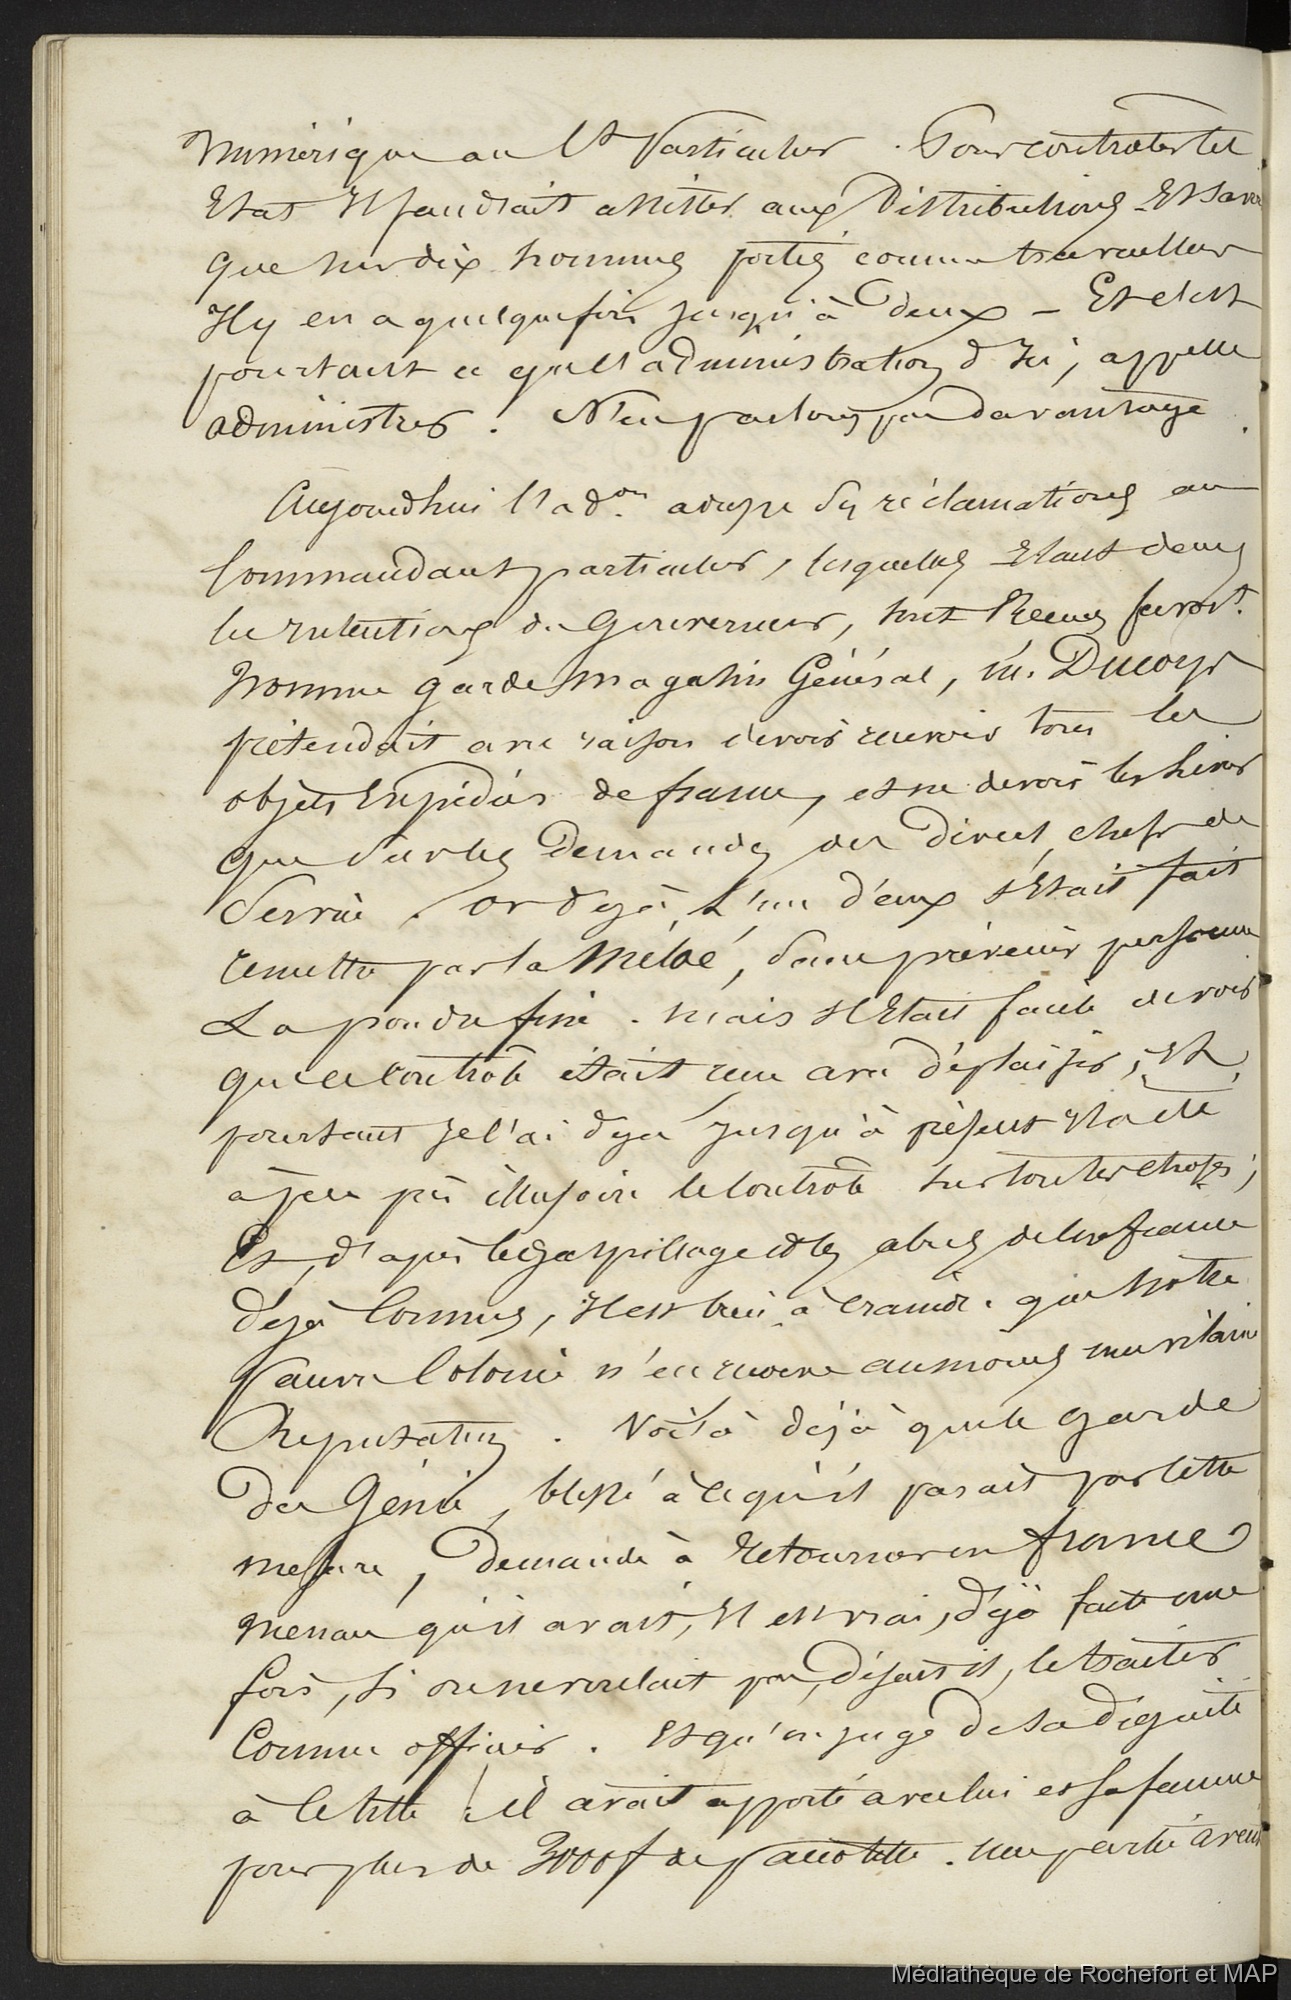 numérique au Ct Particulier. Pour contrôler cet
Etat Il faudrait assister aux Distributions Et savoir
que sur dix hommes portés comme travailleurs
Il y en a quelquefois jusqu'à deux – Et c'est
pourtant ce que l'administration d'Ici, appelle
administrer. N'en parlons pas davantage.
Aujourdhui l'ad.on adresse des réclamations au
Commandant particulier, lesquelles Etant dans
les Intentions du Gouverneur, sont favort.
Nommé garde Magasin Général, M. Ducorps
prétendait avec raison devoir recevoir tous les
objets Expédiés de france, et ne devoir les livrer
que sur les Demandes des Divers chefs de
Service. or déjà, L'un d'eux s'Etait fait
remettre par la Méloé, sans prévenir personne
La poudre fine. mais Il Etait facile de voir
que ce Contrôle était reçu avec déplaisir; Et
pourtant Je l'ai déjà jusqu'à présent Il a été
à peu près illusoire le Contrôle sur toutes choses;
Et, d'après le Gaspillage et les abus de
déjà Connus, Il est bien à craindre que Notre
Pauvre Colonie n'en reçoive au moins une vilaine
Réputation. Voilà déjà que le garde
du Génie, blessé à ce qu'il parait par cette
mesure, Demande à Retourner en france
menace qu'il avait, Il est vrai, déjà faite une
fois, si on ne voulait pas, disait il, le traiter
Comme officier. Et qu'on juge de sa Dignité
à ce titre! il avait apporté avec lui et sa femme
pour plus de 3000f de pacotille. une partie avait